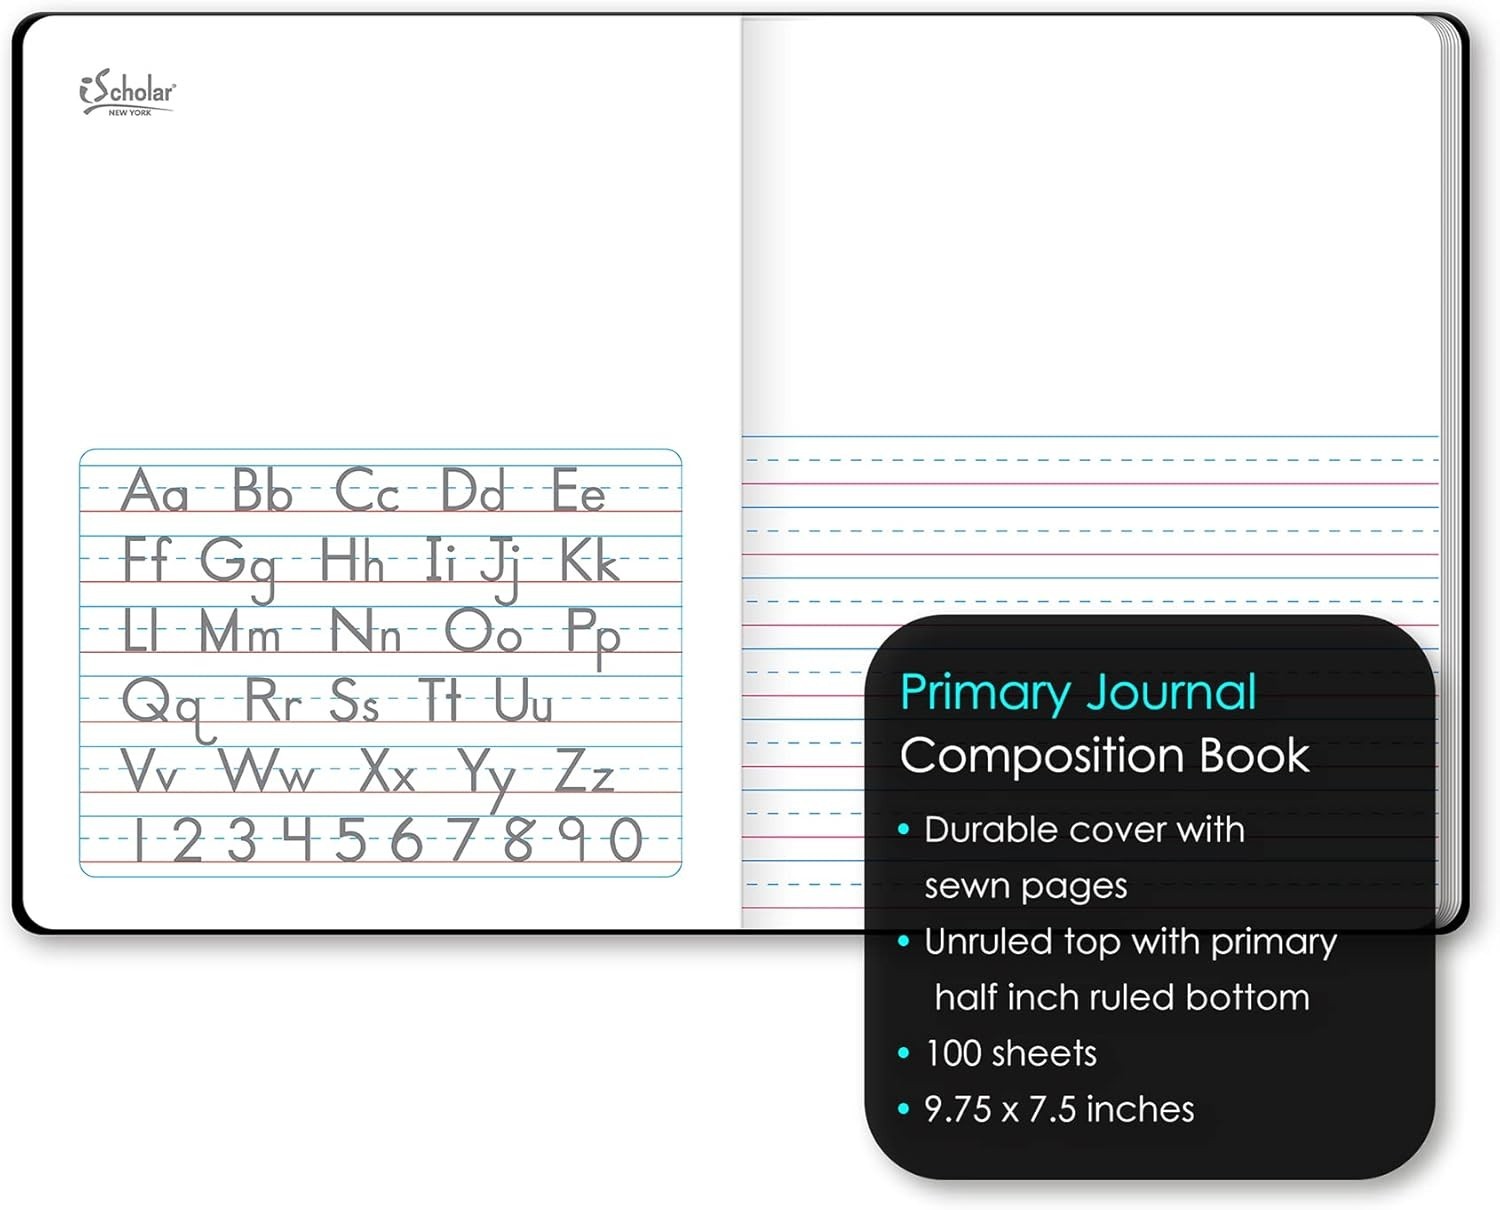 iScholar®
NEW YORK
Aa Bb Cc Dd Ee
Ff Gg Hh Ii Jj Kk
Ll Mm Nn Oo Pp
Qq Rr Ss Tt Uu
Vv Ww Xx Yy Zz
1 2 3 4 5 6 7 8 9 0
Primary Journal
Composition Book
• Durable cover with
sewn pages
• Unruled top with primary
half inch ruled bottom
• 100 sheets
• 9.75 x 7.5 inches